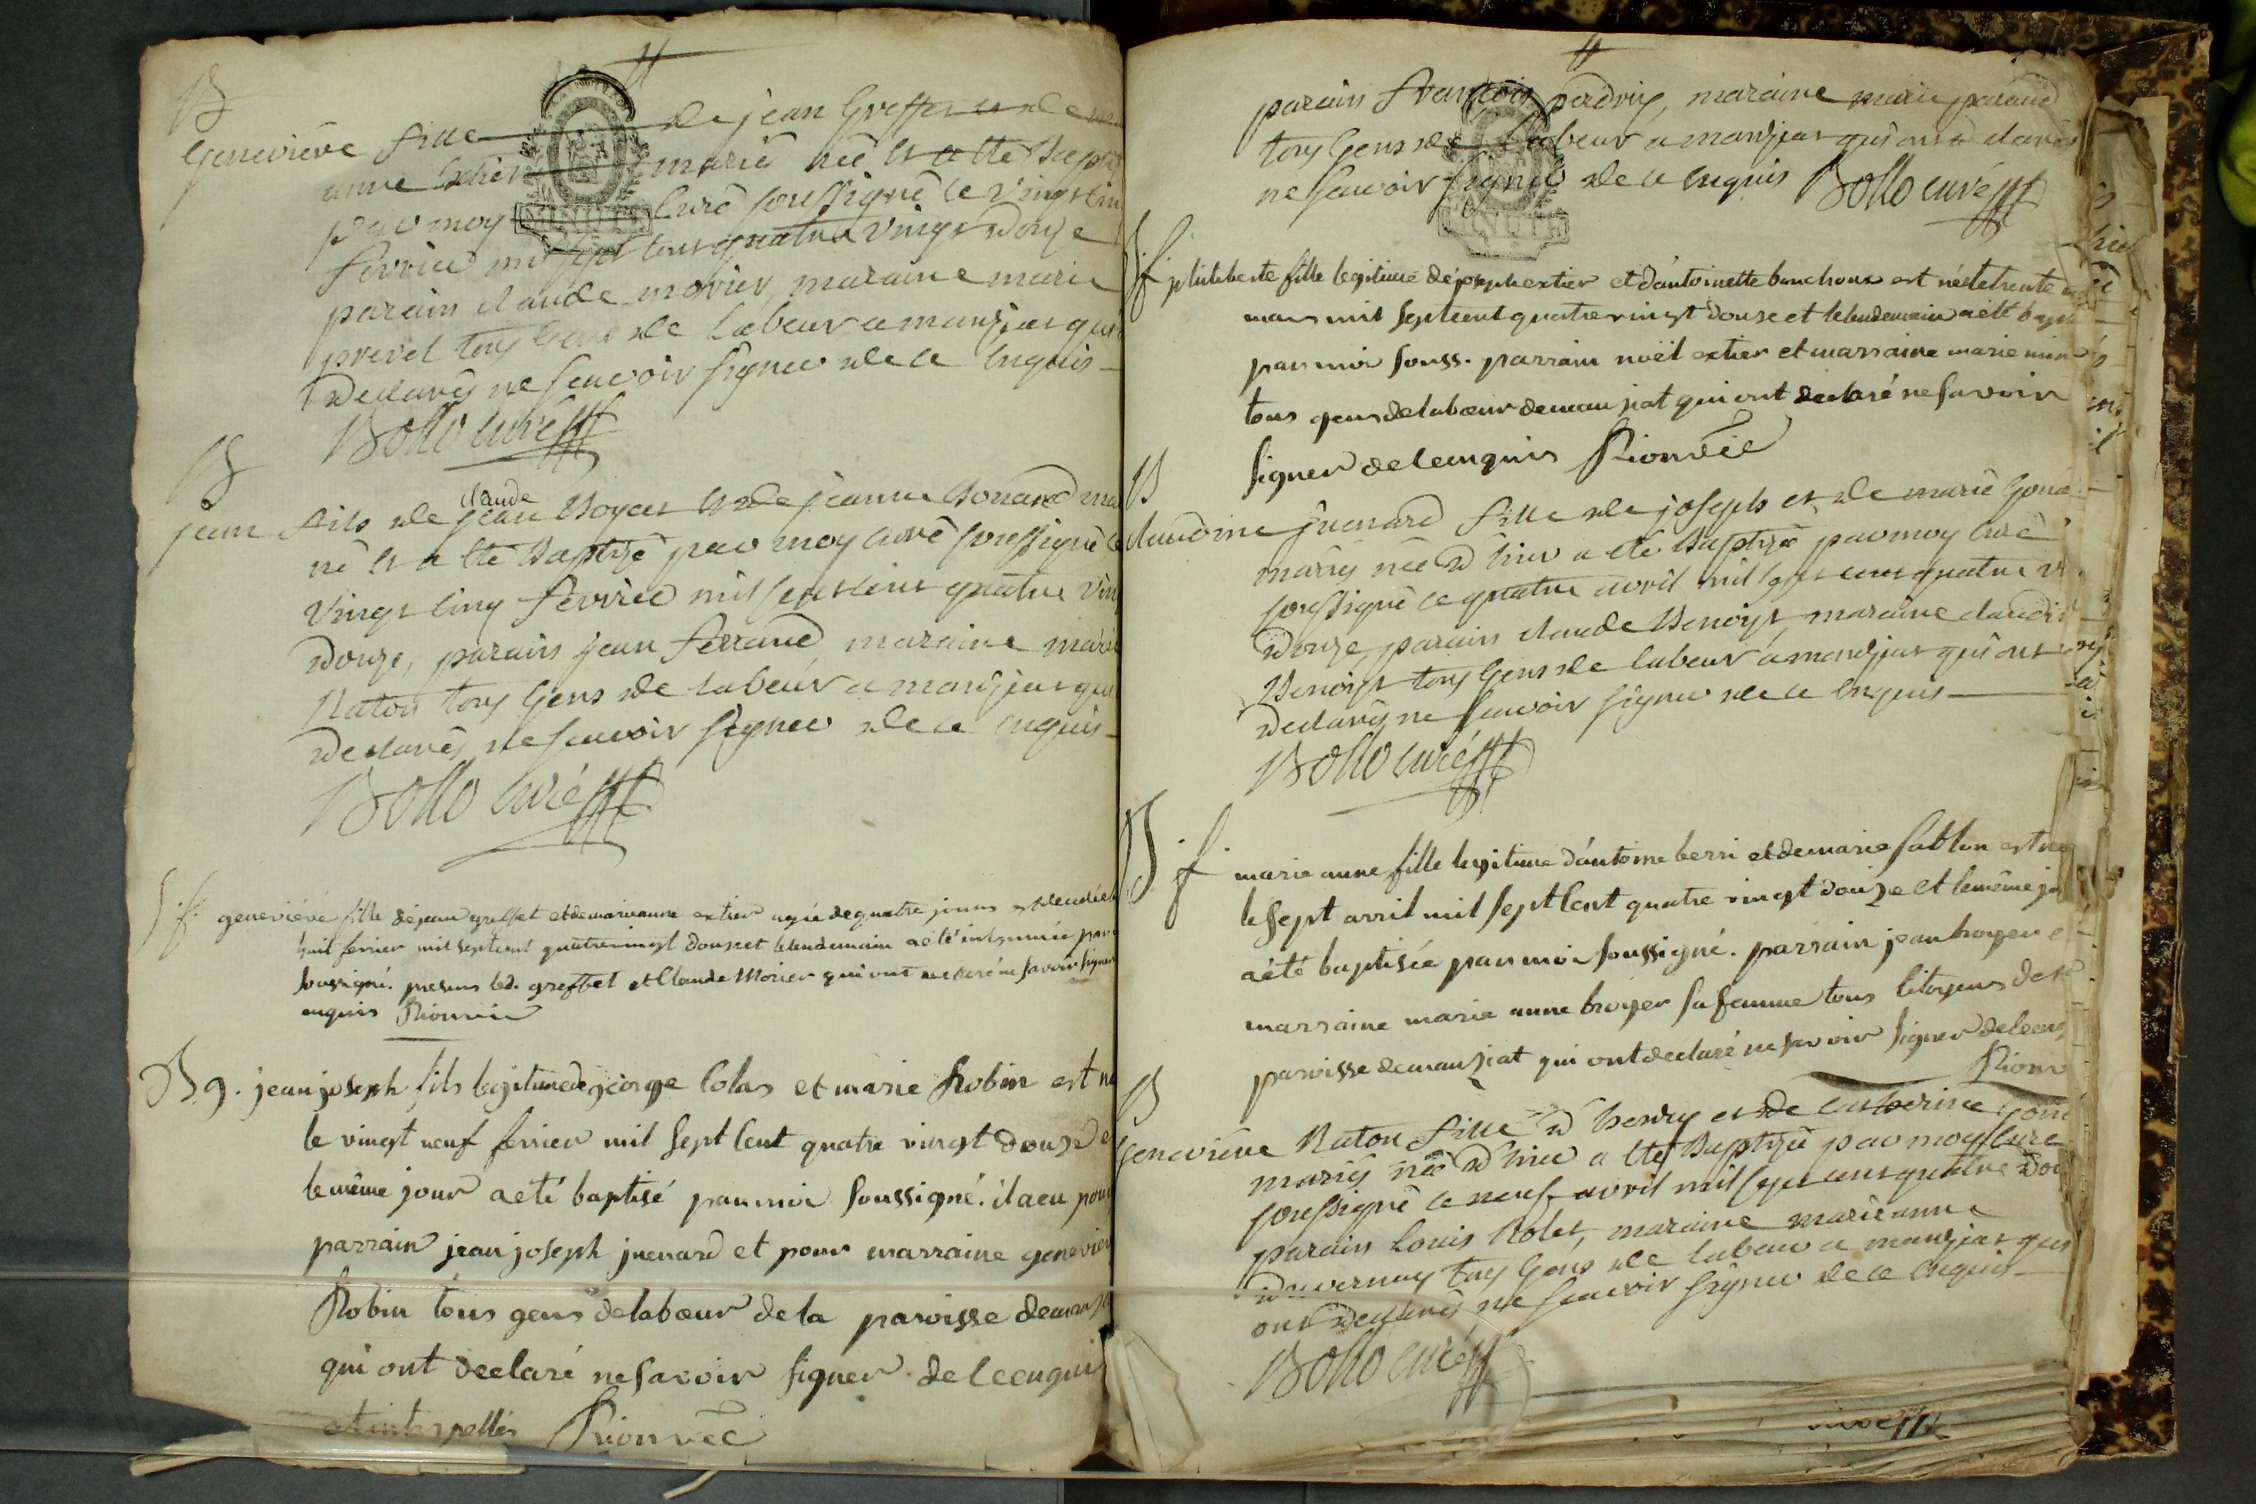 B
Geneviéve fille de jean Greffet et de
anne marié née et a eté Bapt
par moy Curé soussigné le vingt cin
fevrier mil sept cent quatre vingt douze
parain claude morier maraine marie
prevel tous Gens de Labeur a manzjat qui
declarés ne scavoir signer de ce Enquis
Bollo curé
B
claude
jean fils de jean Boyat et de jeanne Bonard ma
né et a eté Baptisé par moy curé soussigné
vingt cinq fevrier mil sept cent quatre vin
douze, parain jean ferrand, maraine marie
Naton tous Gens de Labeur a manzjat qui
declarés ne scavoir signer de ce enquis
Bollo curé
S. f. geneviéve fille de jean greffet et de marie anne extier agée de quatre jours
huit fevrier mil sept cent quatre vingt douze et le lendemain a été inhumée par
soussigné. presens led. greffet et Claude Morier qui ont declaré ne savoir signer
enquis Rionvée
B g. jean joseph fils legitime de george Colas et marie Robin est né
le vingt neuf fevrier mil sept cent quatre vingt douze e
le même jour a eté baptisé par moi soussigné. il a eu pour
parrain jean joseph juenard et pour marraine geneviev
Robin tous gens de labœur de la paroisse de manzia
qui ont declaré ne savoir signer de ce enquis
et interpellés Rionvée
parain francois perdrix, maraine marie
tous Gens de Labeur a manzjat qui ont declarés
ne scavoir signer de ce Enquis Bollo curé
B f philiberte fille legitime de joseph extier et d'antoinette bouchoux est née le trente
mars mil sept cent quatre vingt douze et le lendemain a été bapt
par moi souss. parrain noël extier et marraine marie
tous gens de labœur de manziat qui ont declaré ne savoir
signer de ce enquis Rionvée
B
claudine juenard fille de joseph et de marie Gona
mariés née d'hier a eté Baptisée par moy curé
soussigné le quatre avril mil sept cent quatre v
douze, parain claude Benoist, maraine claudi
Benoist tous Gens de labeur a manzjat qui ont
declarés ne scavoir signer de ce enquis
Bollo curé
B. f. marie anne fille legitime d'antoine berri et de marie sablon est née
le sept avril mil sept cent quatre vingt douze et le même jo
a été baptisée par moi soussigné. parrain jean broyer e
marraine marie anne broyer sa femme tous Citoyens de
paroisse de manziat qui ont declaré ne savoir signer de ce enq
Rionv
B
Geneviéve Naton fille d'henry et de Catherine Gon
mariés née d'hier a eté Baptisée par moy Curé
soussigné le neuf avril mil sept cent quatre dou
parain Louis Rolet, maraine marie anne
Duvernay tous Gens de labeur a manzjat qui
ont declarés ne scavoir signer de ce enquis
Bollo curé